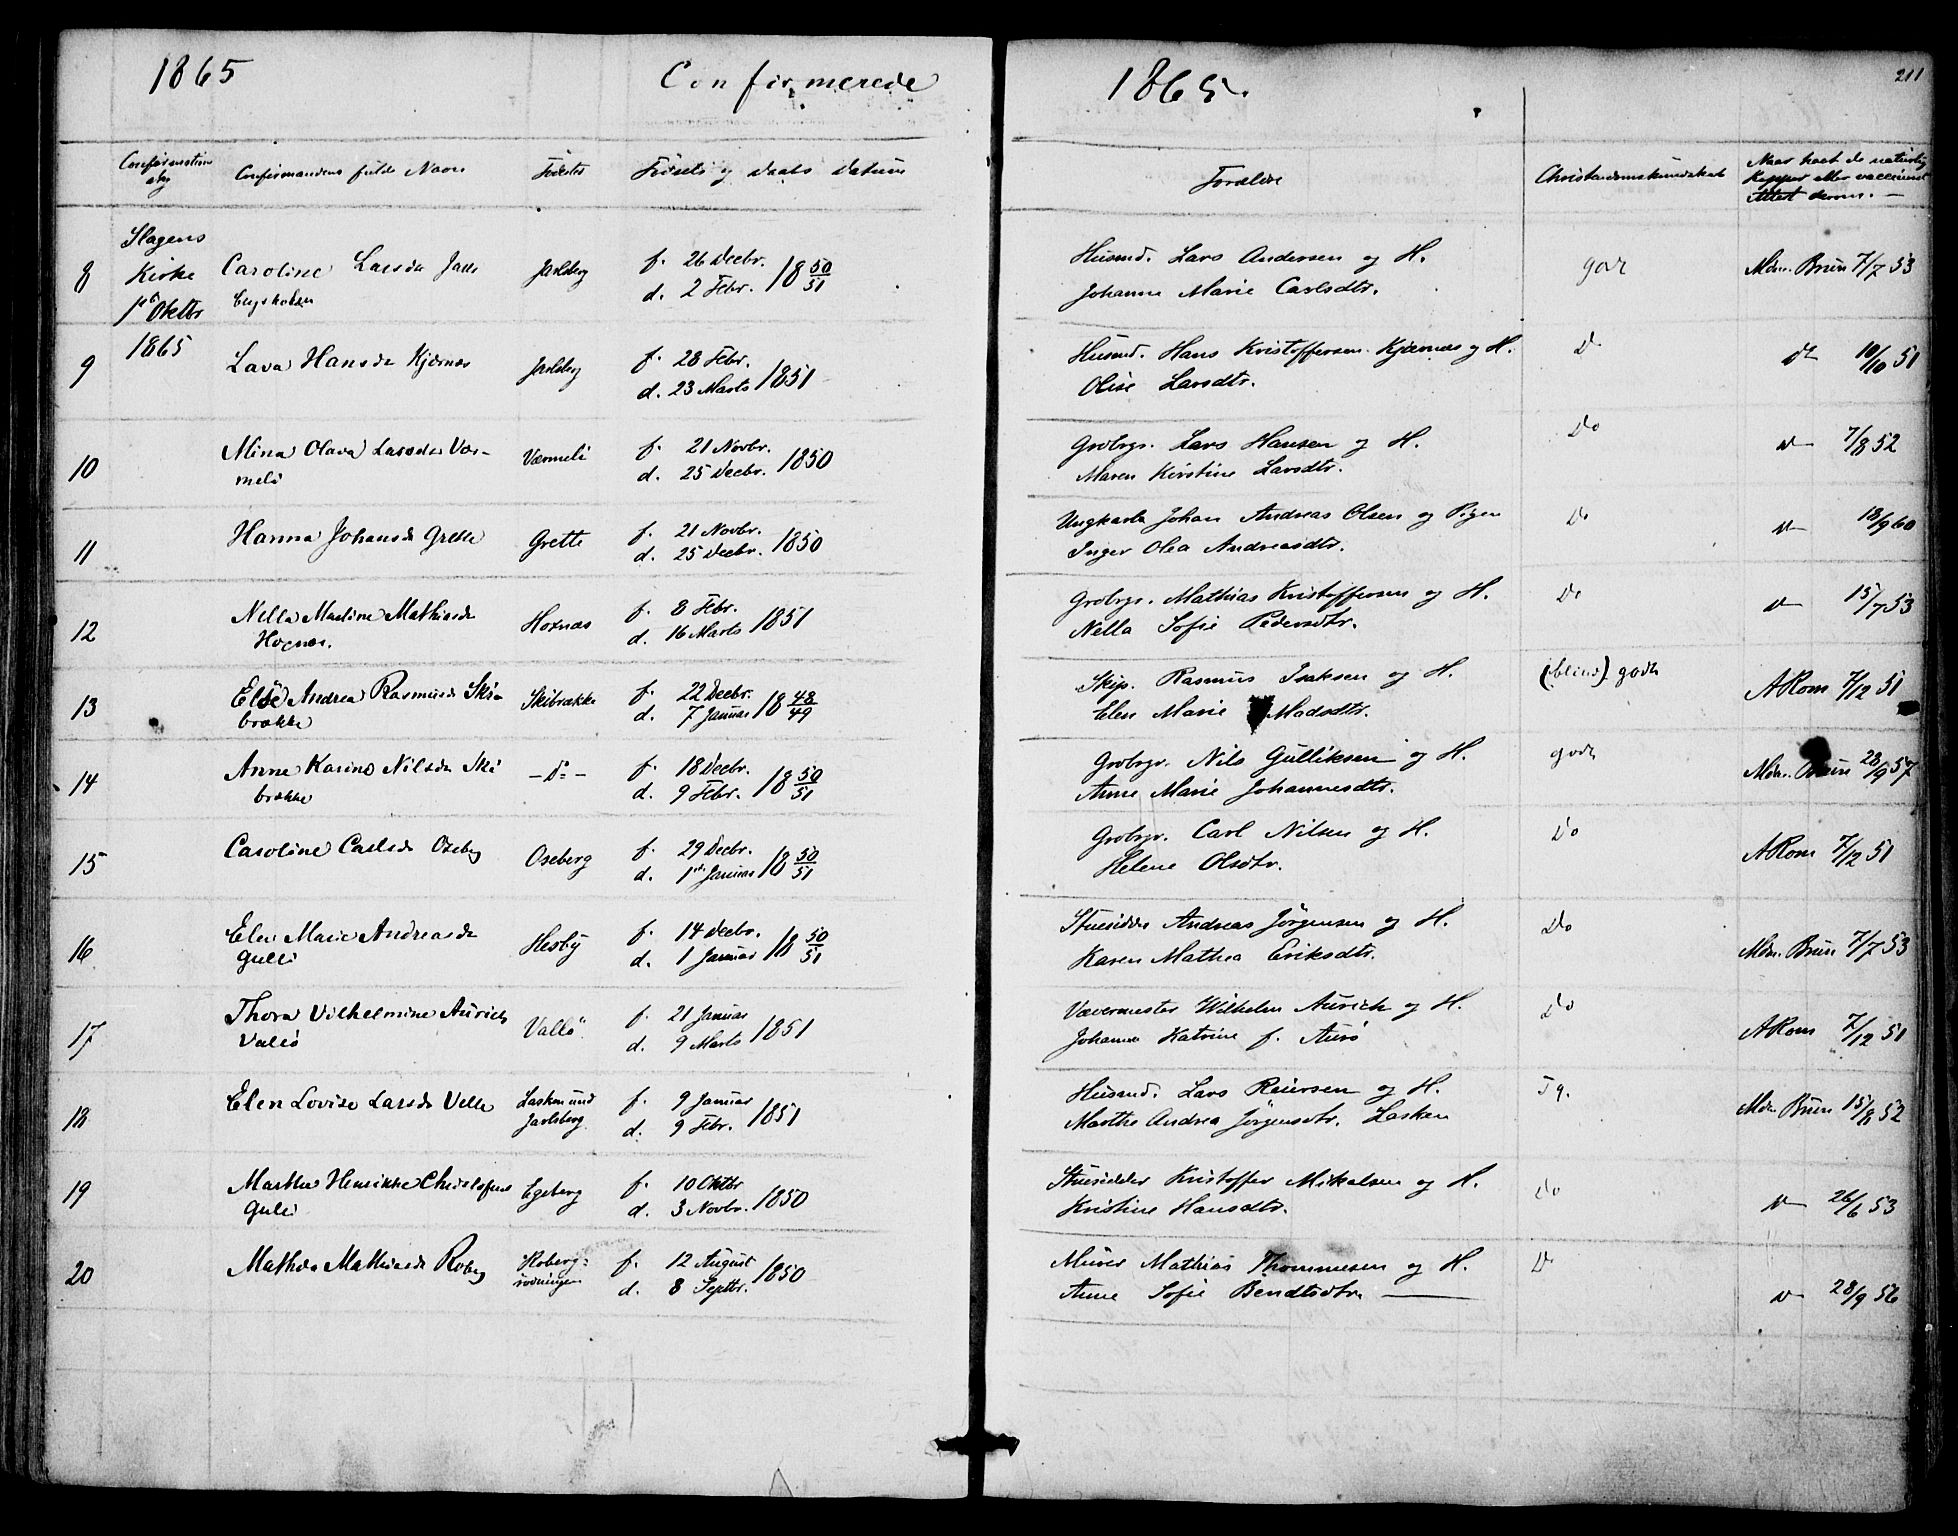 1865 Confirmerede
1865.
211
Confirmation
Confirmandens fulde Navn
Fødested
Fødsels og Daabs Datum
Forældre
Christendomskundskab
Naar havt de naturlig
Kopper eller vaccineret
Attest derom. —
Slagens
Kirke
1st Oktbr
1865
8 Caroline Larsdr Jarls
Jarlsberg
f. 26 Decbr.
d. 2 Febr. 18 50/51
Husmd. Lars Andersen og H.
Johanne Marie Carlsdtr.
godt
Mdm. Brun 7/7 53
9 Lava Hansdr Kjærnæs
Jarlsberg
f. 28 Febr.
d. 23 Marts 1851
Husmd. Hans Kristoffersen Kjærnæs og H.
Olise Larsdtr.
Do
Do 10/10 51
10 Mina Olava Larsdr Vær-
meli
Værmeli
f. 21 Novbr.
d. 25 Decbr. 1850
Grdbrgr. Lars Hansen og H.
Maren Kirstine Larsdtr.
Do
Do 7/8 52
11 Hanna Johansdr Grette
Grette
f. 21 Novbr.
d. 25 Decbr. 1850
Ungkarl Johan Andreas Olsen og Pigen
Inger Olea Andreasdtr.
Do
Do 18/9 60
12 Nella Martine Mathisdr
Hognæs.
f. 8 Febr.
d. 16 Marts 1851
Grdbrgr. Mathias Kristoffersen og H.
Nella Sofie Pedersdtr.
Do
Do 15/7 53
13 Else Andrea Rasmusdr Ski-
brække
Skibrække
f. 22 Decbr.
d. 7 Januar 18 48/49
Skip. Rasmus Isaksen og H.
Elen Marie Madsdtr.
(blind) godt
A Rom 7/12 51
14 Anne Karine Nilsdr Ski
brække
— Do —
f. 18 Decbr.
d. 9 Febr. 18 50/51
Grdbrgr. Nils Gulliksen og H.
Anne Marie Johannesdtr.
godt
Mdm. Brun 28/9 57
15 Caroline Carlsdr Oseberg
Oseberg
f. 29 Decbr.
d. 1ste Januar 18 50/51
Grdbrgr. Carl Nilsen og H.
Helene Olsdtr.
Do
A Rom 7/12 51
16 Elen Marie Andreasdr
Gulli
Hesby
f. 14 Decbr.
d. 1 Januar 18 50/51
Stuesidder Andreas Jörgensen og H.
Karen Mathea Eriksdtr.
Do
Mdm. Brun 7/7 53
17 Thora Vilhelmine Aurich
Vallö
Vallö
f. 21 Januar
d. 9 Marts 1851
Vævermester Wilhelm Aurich og H.
Johanne Katrine f. Auro
Do
A Rom 7/12 51
18 Elen Lovise Larsdr Velle
Lasken und
Jarlsberg
f. 9 Januar
d. 9 Febr. 1851
Husmd. Lars Reiersen og H.
Marthe Andrea Jörgensdtr. Lasken
Tg.
Mdm. Brun 15/8 52
19 Marthe Henrikke Christofersdr
Gulli
Egeberg
f. 10 Oktbr
d. 3 Novbr. 1850
Stuesidder Kristoffer Mikalsen og H.
Kristine Hansdtr.
Do
Do 26/6 53
20 Mathea Mathiasdr Roberg
Roberg-
rødningen
f. 12 August
d. 8 Septbr. 1850
Murer Mathias Thommesen og H.
Anne Sofie Bendtsdtr. —
Do
Do 28/9 56